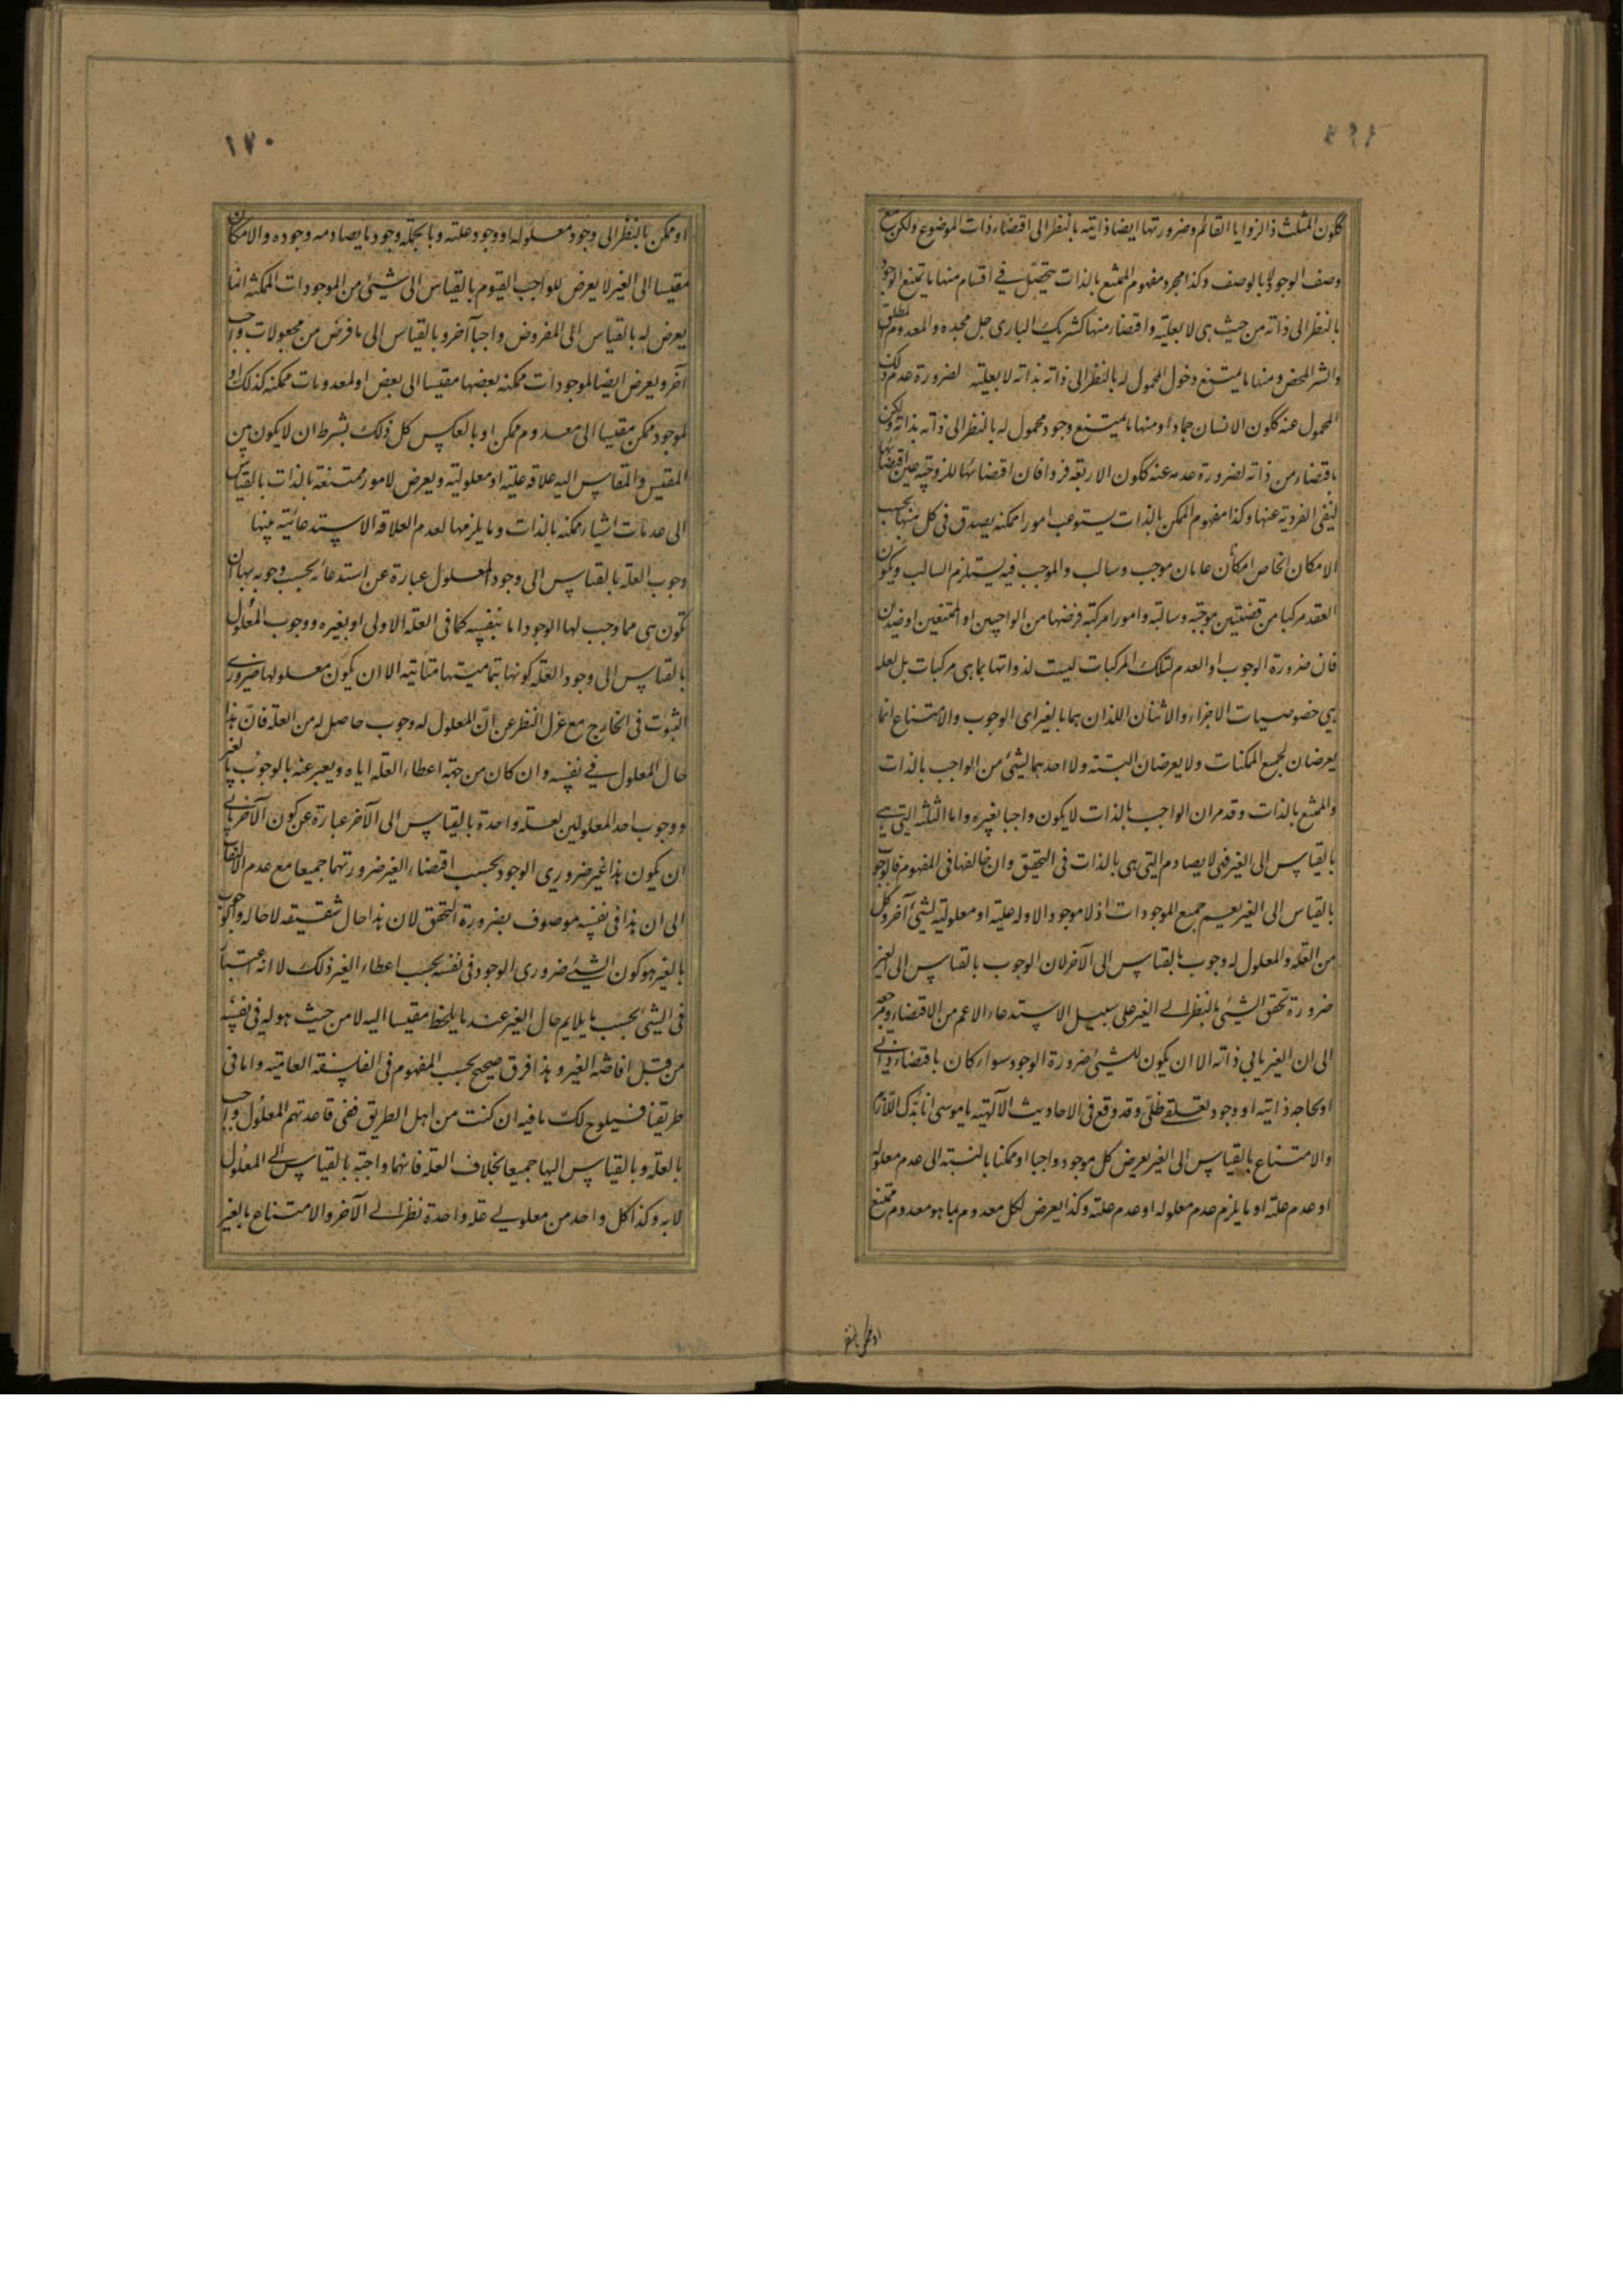 ككون المثلث ذا الزوايا القائم وضرورتها ايضا ذاتية بالنظر الى اقتضاء ذات الموضوع ولكن مع
وصف الوجود لا بالوصف وكذا مجرد مفهوم الممتنع بالذات يتحصل في اقسام منها ما يمتنع الوجود
بالنظر الى ذاته من حيث هي لا بعلية واقتضاء منها كشريك الباري جل مجده والمعدوم المطلق
والشر المحض ومنها ما يمتنع دخول المحمول له بالنظر الى ذاته بذاته لا بعلية لضرورة عدم ذلك
المحمول عنه ككون الانسان جمادا ومنها ما يمتنع وجود محمول له بالنظر الى ذاته بذاته ولكن
باقتضاء من ذاته لضرورة عدمه عنه ككون الاربعة فردا فان اقتضائها للزوجية عين اقتضائها
لنفي الفردية عنها وكذا مفهوم الممكن بالذات يستوعب امورا ممكنة يصدق في كل منها بحسب
الامكان الخاص امكان عامان موجب وسالب والموجب فيه يستلزم السالب ويكون
العقد مركبا من قضيتين موجبة وسالبة وامورا مركبة فرضها من الواجبين او الممتنعين او ضدين
فان ضرورة الوجوب او العدم لتلك المركبات ليست لذواتها بما هي مركبات بل لعلة
هي خصوصيات الاجزاء والاثنان اللذان هما بالغير اي الوجوب والامتناع انما
يعرضان لجميع الممكنات ولا يعرضان البتة ولا احدهما لشيئ من الواجب بالذات
والممتنع بالذات وقد مر ان الواجب بالذات لا يكون واجبا بغيره واما الثلثة التي هي
بالقياس الى الغير فهي لا يصادم التي هي بالذات في التحقق وان خالفها في المفهوم فالوجوب
بالقياس الى الغير يعم جميع الموجودات اذ لا موجود الا وله علية او معلولية لشيئ آخر وكل
من العلة والمعلول له وجوب بالقياس الى الآخر لان الوجوب بالقياس الى الغير
ضرورة تحقق الشيئ بالنظر الى الغير على سبيل الاستدعاء الاعم من الاقتضاء ومرجعه
الى ان الغير يابي ذاته الا ان يكون للشيئ ضرورة الوجود سواء كان باقتضاء ذاتي
او بحاجة ذاتية او وجود تعلقي ظلي وقد وقع في الاحاديث الآلهية يا موسى انا بدك اللازم
والامتناع بالقياس الى الغير يعرض كل موجود واجبا او ممكنا بالنسبة الى عدم معلوله
او عدم علته او ما يلزم عدم معلوله او عدم علته وكذا يعرض لكل معدوم بما هو معدوم ممتنع
او ممكن بالنظر
١٧٠
او ممكن بالنظر الى وجود معلوله او وجود علته وبالجملة وجود ما يصادمه وجوده والامكان
مقيسا الى الغير لا يعرض للواجب القيوم بالقياس الى شيئ من الموجودات الممكنة انما
يعرض له بالقياس الى المفروض واجبا آخر وبالقياس الى ما فرض من مجعولات واجب
آخر ويعرض ايضا لموجودات ممكنة بعضها مقيسا الى بعض او لمعدومات ممكنة كذلك او
لموجود ممكن مقيسا الى معدوم ممكن او بالعكس كل ذلك بشرط ان لا يكون بين
المقيس والمقايس اليه علاقة علية او معلولية ويعرض لامور ممتنعة بالذات بالقياس
الى عدمات اشياء ممكنة بالذات وما يلزمها لعدم العلاقة الاستدعائية بينها
وجوب العلة بالقياس الى وجود المعلول عبارة عن استدعائه بحسب وجوبه بها ان
تكون هي مما وجب لها الوجود اما بنفسه كما في العلة الاولى او بغيره ووجوب المعلول
بالقياس الى وجود العلة كونها بتماميتها متأبية الا ان يكون معلولها ضروري
الثبوت في الخارج مع عزل النظر عن ان المعلول له وجوب حاصل له من العلة فان هذا
حال المعلول في نفسه وان كان من جهة اعطاء العلة اياه ويعبر عنه بالوجوب بالغير
ووجوب احد المعلولين لعلة واحدة بالقياس الى الآخر عبارة عن كون الآخر يابي
ان يكون هذا غير ضروري الوجود بحسب اقتضاء الغير ضرورتهما جميعا مع عدم الالتفات
الى ان هذا في نفسه موصوف بضرورة التحقق لان هذا حال شقيقه لا حاله والوجوب
بالغير هو كون الشيئ ضروري الوجود في نفسه بحسب اعطاء الغير ذلك لا انه اعتبار
في الشيئ بحسب ما يلايم حال الغير عند ما يلحظ مقيسا اليه لا من حيث هو له في نفسه
من قبل افاضة الغير وهذا فرق صحيح بحسب المفهوم في الفلسفة العامية واما في
طريقنا فسيلوح لك ما فيه ان كنت من اهل الطريق ففي قاعدتهم المعلول واجب
بالعلة وبالقياس اليها جميعا بخلاف العلة فانها واجبة بالقياس الى المعلول
لا به وكذا كل واحد من معلولي علة واحدة نظرا الى الآخر والامتناع بالغير